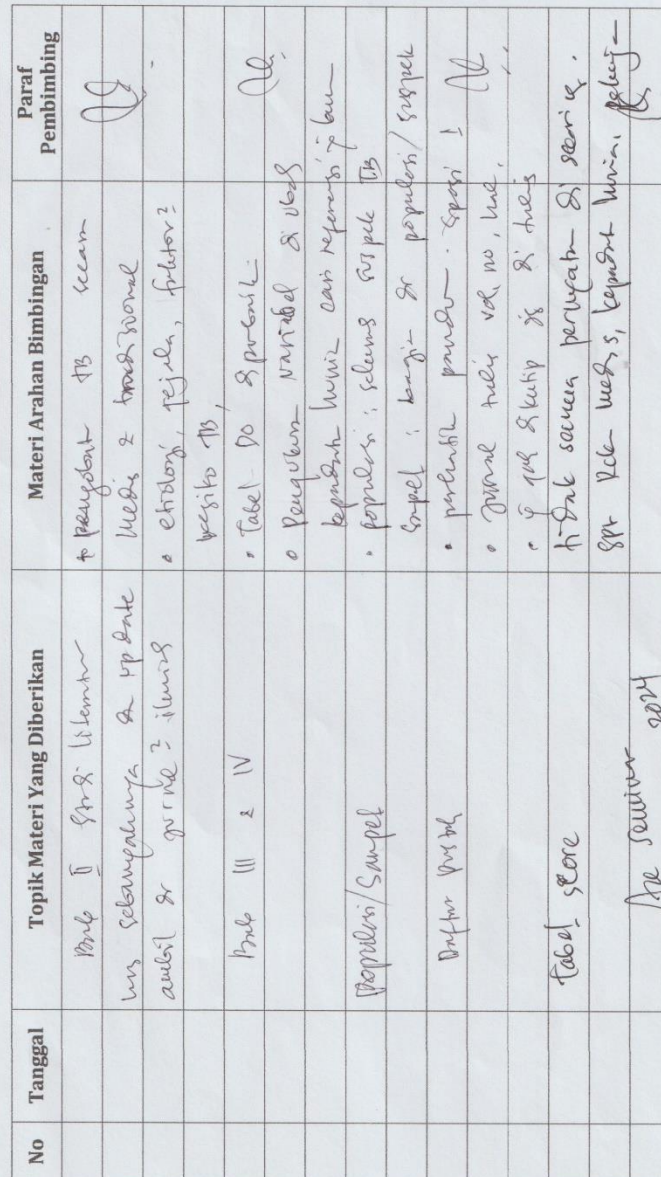 No Tanggal Topik Materi Yang Diberikan Materi Arahan Bimbingan Paraf Pembimbing
Bab II Studi Literatur + pengobatan TB secara
sebanyaknya & update medis & tradisional
ambil dr jurnal² ilmiah • etiologi, gejala, faktor²
resiko TB,
Bab III & IV • Tabel DO diperbaiki
• Pengukuran variabel di ubah
kepadatan hunian cari referensi
Populasi/Sampel • populasi : seluruh suspek TB
Sampel : bagian dr populasi/suspek
Daftar Pustaka • perbaiki spasi !
• jurnal tulis vol, no, hal.
• yg dikutip yg di tulis
Tabel score tidak semua pernyataan di scoring.
spt medis, kepadatan hunian,
Acc seminar 2024